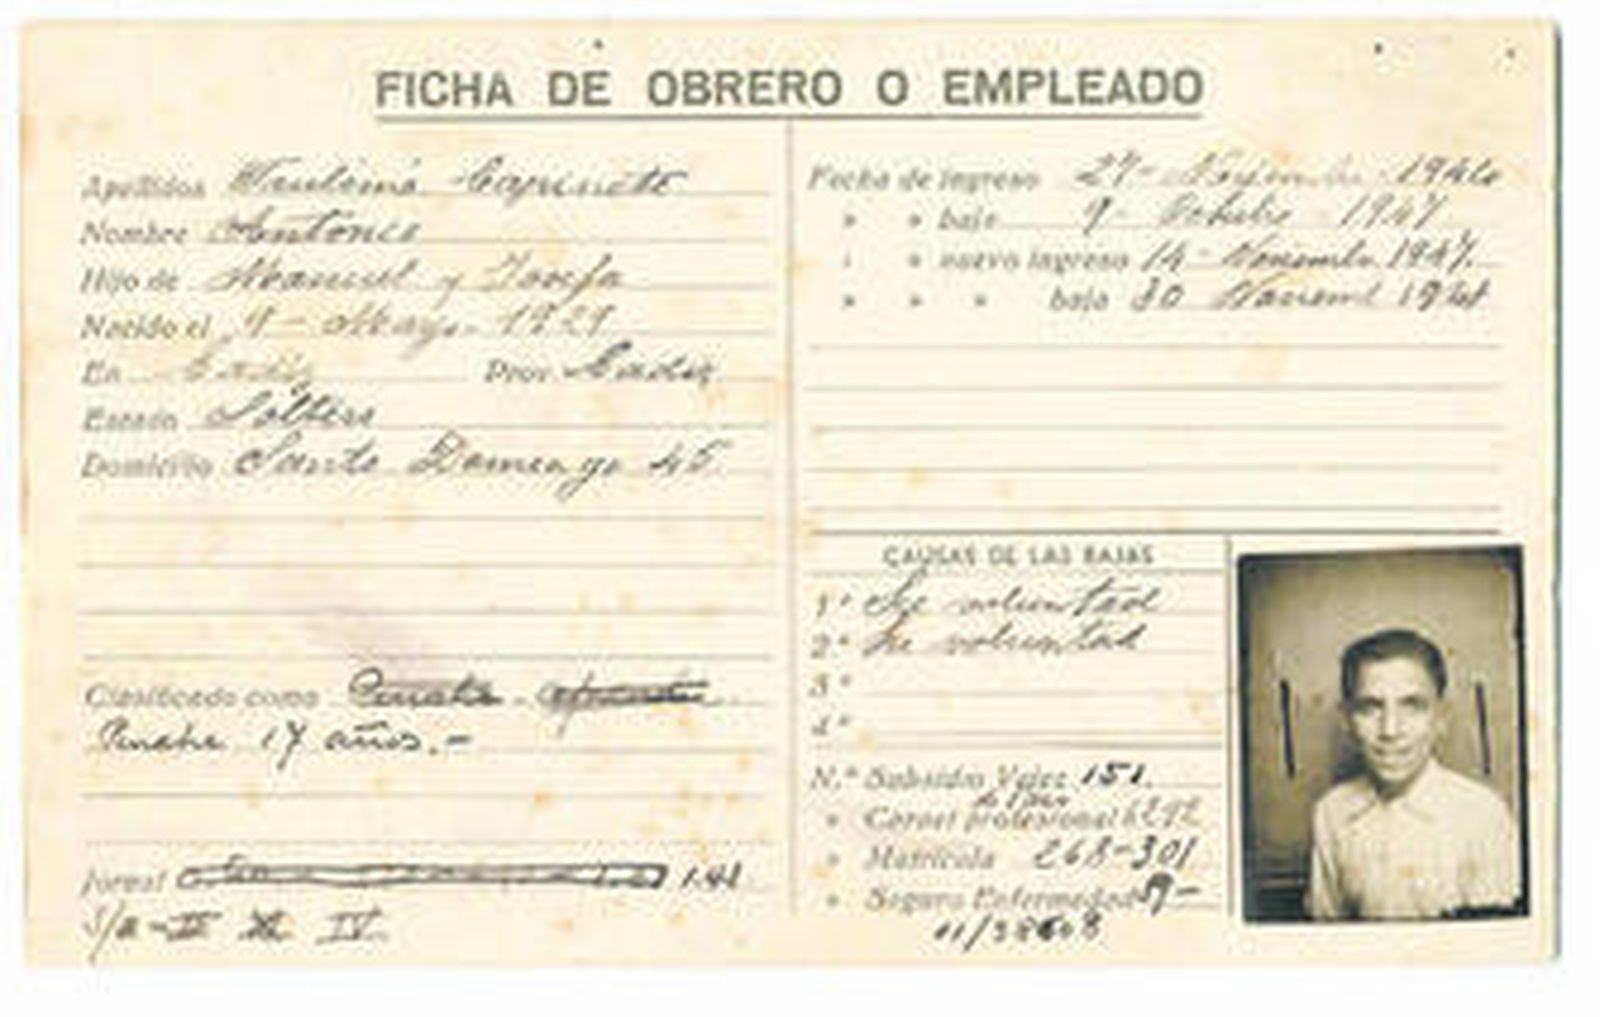 FICHA DE OBRERO O EMPLEADO
Apellidos
Nombre Antonio
Hijo de Manuel y Josefa
Nacido el 9 - Mayo - 1929
En Cadiz Prov. Cadiz
Estado Soltero
Domicilio Santo Domingo 45
Clasificado como
Pinche 17 años.-
Jornal
S/a - II IV
Fecha de ingreso 27 - Noviembre - 1946
" " baja 9 - Octubre - 1947
" " nuevo ingreso 14 - Noviembre 1947.
" " " baja 30
CAUSAS DE LAS BAJAS
1ª Su voluntad
2ª Su voluntad
3ª
4ª
N.º Subsidio Vejez 151.
" Carnet profesional
" Matrícula 268-301
" Seguro Enfermedad